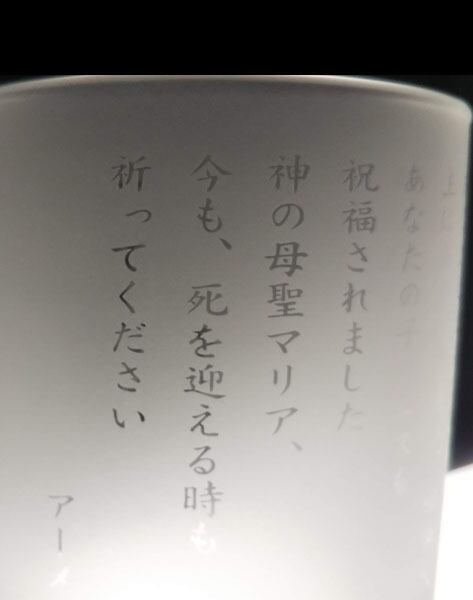 あなたの子
祝福されました
神の母聖マリア、
今も、死を迎える時も
祈ってください
アーメ